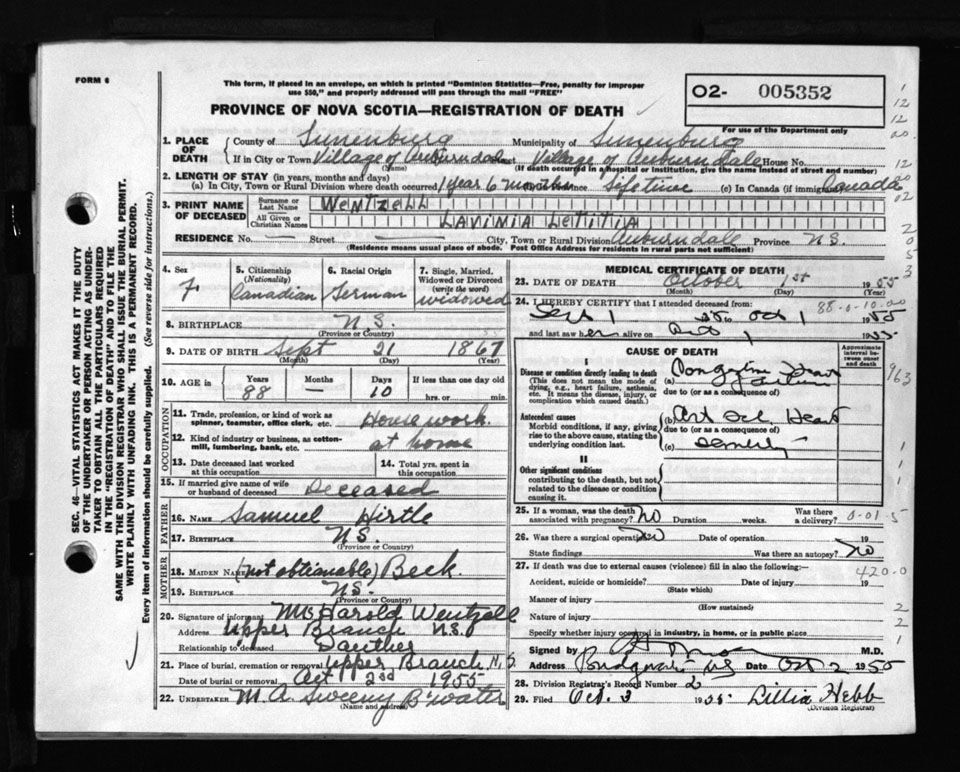 FORM 6
This form, if placed in an envelope, on which is printed "Dominion Statistics—Free, penalty for improper
use $50," and properly addressed will pass through the mail "FREE"
PROVINCE OF NOVA SCOTIA—REGISTRATION OF DEATH
O2- 005352
For use of the Department only
1. PLACE OF DEATH
County of Lunenburg Municipality of Lunenburg
If in City or Town Village of Auburndale Street Village of Auburndale House No.
(Name) (If death occurred in a hospital or institution, give its name instead of street and number)
2. LENGTH OF STAY (in years, months and days)
(a) In City, Town or Rural Division where death occurred 1 year 6 months Life time (c) In Canada (if immigrant) Canada
3. PRINT NAME OF DECEASED
Surname or Last Name WENTZELL
All Given or Christian Names LAVINIA LETITIA
RESIDENCE No. — Street — City, Town or Rural Division Auburndale Province N.S.
(Residence means usual place of abode. Post Office Address for residents in rural parts not sufficient)
4. Sex F
5. Citizenship (Nationality) Canadian
6. Racial Origin German
7. Single, Married, Widowed or Divorced (write the word) widowed
8. BIRTHPLACE N.S.
(Province or Country)
9. DATE OF BIRTH Sept 21 1867
(Month) (Day) (Year)
10. AGE in Years 88 Months — Days 10 If less than one day old
hrs. or min.
OCCUPATION
11. Trade, profession, or kind of work as spinner, teamster, office clerk, etc. House work.
12. Kind of industry or business, as cotton-mill, lumbering, bank, etc. at home
13. Date deceased last worked at this occupation
14. Total yrs. spent in this occupation
15. If married give name of wife or husband of deceased Deceased
FATHER
16. NAME Samuel Hirtle
17. BIRTHPLACE N.S.
(Province or Country)
MOTHER
18. MAIDEN NAME (not obtianable) Beck.
19. BIRTHPLACE N.S.
(Province or Country)
20. Signature of informant Mrs Harold Wentzell
Address Upper Branch N.S.
Relationship to deceased Dauther
21. Place of burial, cremation or removal Upper Branch N.S
Date of burial or removal Oct 2nd 1955
22. UNDERTAKER M. A. Sweeny B'water
(Name and address)
MEDICAL CERTIFICATE OF DEATH
23. DATE OF DEATH October 1st 1955
(Month) (Day) (Year)
24. I HEREBY CERTIFY that I attended deceased from:
Sept 1 55 to Oct 1 1955
88-0-10.00
and last saw her alive on Oct 1 1955
CAUSE OF DEATH
Approximate interval between onset and death
I
Disease or condition directly leading to death
(This does not mean the mode of dying, e.g., heart failure, asthenia, etc. It means the disease, injury, or complication which caused death.)
(a) Congestive Heart Failure
due to (or as a consequence of)
Antecedent causes
Morbid conditions, if any, giving rise to the above cause, stating the underlying condition last.
(b) Art Scl Heart
due to (or as a consequence of)
(c) Senility
II
Other significant conditions contributing to the death, but not related to the disease or condition causing it.
25. If a woman, was the death associated with pregnancy? no Duration weeks. Was there a delivery?
0-01-5
26. Was there a surgical operation? no Date of operation 19
State findings Was there an autopsy? no
27. If death was due to external causes (violence) fill in also the following:—
420-0
Accident, suicide or homicide? Date of injury 19
(State which)
Manner of injury
(How sustained)
Nature of injury
Specify whether injury occurred in industry, in home, or in public place
Signed by M.D.
Address Bridgewater NS Date Oct 2 1955
28. Division Registrar's Record Number 2
29. Filed Oct. 3 1955 Lillia Hebb
(Division Registrar)
SEC. 46—VITAL STATISTICS ACT MAKES IT THE DUTY
OF THE UNDERTAKER OR PERSON ACTING AS UNDER-
TAKER TO OBTAIN ALL THE PARTICULARS REQUIRED
IN THE "REGISTRATION OF DEATH" AND TO FILE THE
SAME WITH THE DIVISION REGISTRAR WHO SHALL ISSUE THE BURIAL PERMIT.
WRITE PLAINLY WITH UNFADING INK. THIS IS A PERMANENT RECORD.
Every item of information should be carefully supplied. (See reverse side for instructions.)
1
12
12
00
12
00
02
2
0
5
3
963
1
1
1
2
2
1